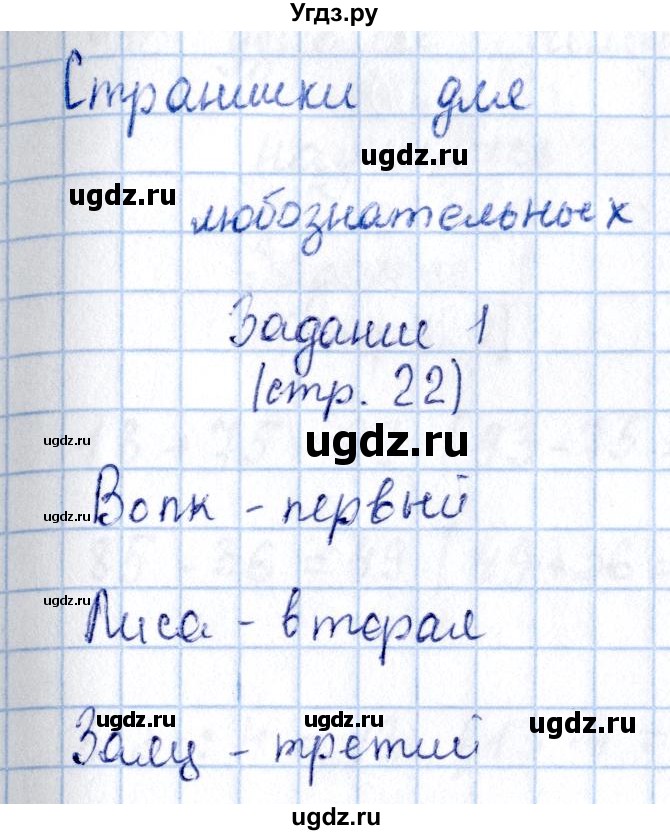 Угдз.ру
Странички для
ugdz.ru
ugdz.ru
любознательных
Задание 1
(стр. 22)
ugdz.ru
ugdz.ru
Волк - первый
ugdz.ru
ugdz.ru
Лиса - вторая
ugdz.ru
ugdz.ru
ugdz.ru
Заяц - третий
ugdz.ru